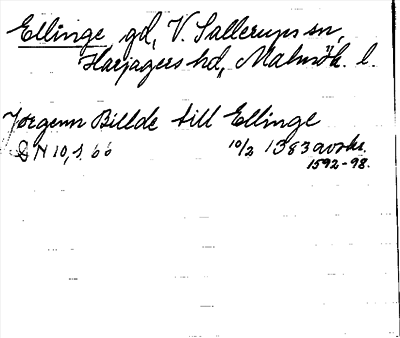 Ellinge gd, V. Sallerups sn,
Harjagers hd, Malmöh. l.
Jørgenn Billde till Ellinge
DN 10, s. 66 10/2 1383 avskr.
1592-98.